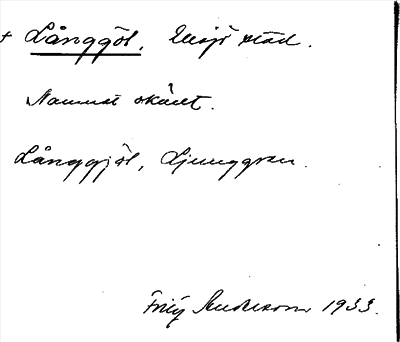 + Långgöl, Växjö stad.
Namnet okänt.
Långgjöl, Ljunggren.
Fritz Anderson 1933.